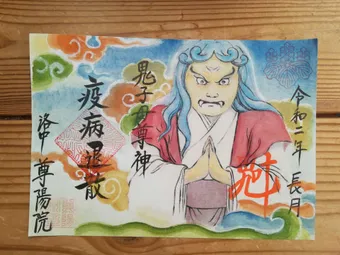 令和二年 長月
鬼子母尊神
疫病退散
洛中 尊陽院